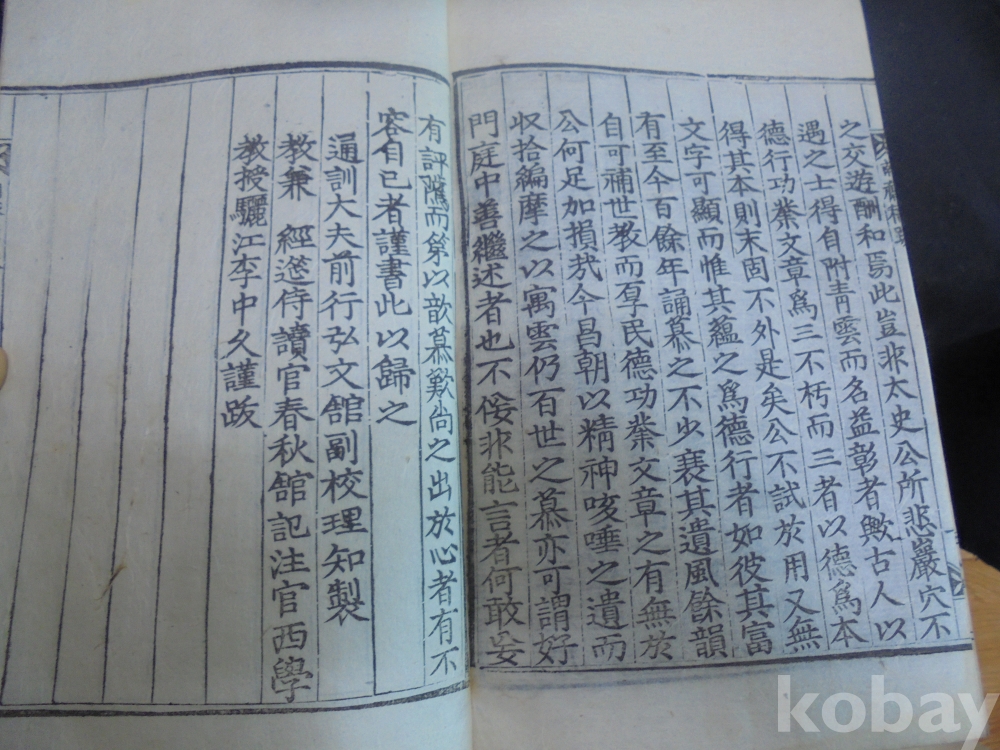 之交遊酬和焉此豈非太史公所悲巖穴不
遇之士得自附靑雲而名益彰者歟古人以
德行功業文章爲三不朽而三者以德爲本
得其本則末固不外是矣公不試於用又無
文字可顯而惟其蘊之爲德行者如彼其富
有至今百餘年誦慕之不少衰其遺風餘韻
自可補世敎而厚民德功業文章之有無於
公何足加損哉今昌朝以精神咳唾之遺而
収拾編摩之以寓雲仍百世之慕亦可謂好
門庭中善繼述者也不佞非能言者何敢妄
有評隲而第以歆慕歎尙之出於心者有不
容自已者謹書此以歸之
通訓大夫前行弘文舘副校理知製
敎兼 經筵侍讀官春秋舘記注官西學
敎授驪江李中久謹跋
kobay